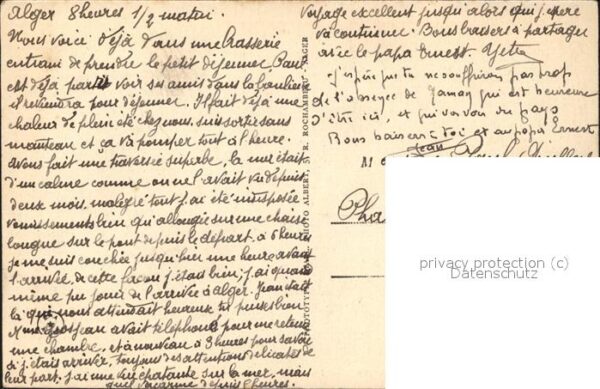 Alger 8 heures 1/2 matin.
Nous voici déjà dans une brasserie
entrain de prendre le petit déjeuner, Paul
est déjà partit voir ses amis dans la banlieue
il reviendra pour déjeuner. Il fait déjà une
chaleur de plein été chez nous, suis sortie sans
manteau et ça va pomper tout à l'heure.
Avons fait une traversée superbe, la mer était
d'un calme comme on ne l'avait vu depuis
deux mois, malgré tout j'ai été indisposée
vomissements bien qu'allongée sur une chaise
longue sur le pont depuis le départ. à 6 heures
je me suis couchée jusqu'à une heure avant
l'arrivée, de cette façon j'étais bien; j'ai quand
même pu jouir de l'arrivée à Alger. Jean était
là qui nous attendait heureux tu penses bien
Jean avait téléphoné pour me retenir
une chambre, et à nouveau à 3 heures pour savoir
si j'étais arrivée, toujours des attentions délicates de
leur part. J'ai une vue épatante sur la mer, mais
quel vacarme depuis 6 heures.
PHOTO ALBERT, R. ROCHAMBEAU ALGER
Voyage excellent jusqu'alors qui j'espère
va continuer. Bons baisers à partager
avec le papa Ernest. Yette
J'espère que tu ne souffriras pas trop
de l'absence de Jamay qui est heureuse
d'être ici, et qui va voir du pays
Bons baisers à toi et au papa Ernest
Jean
M
Pha
privacy protection (c)
Datenschutz